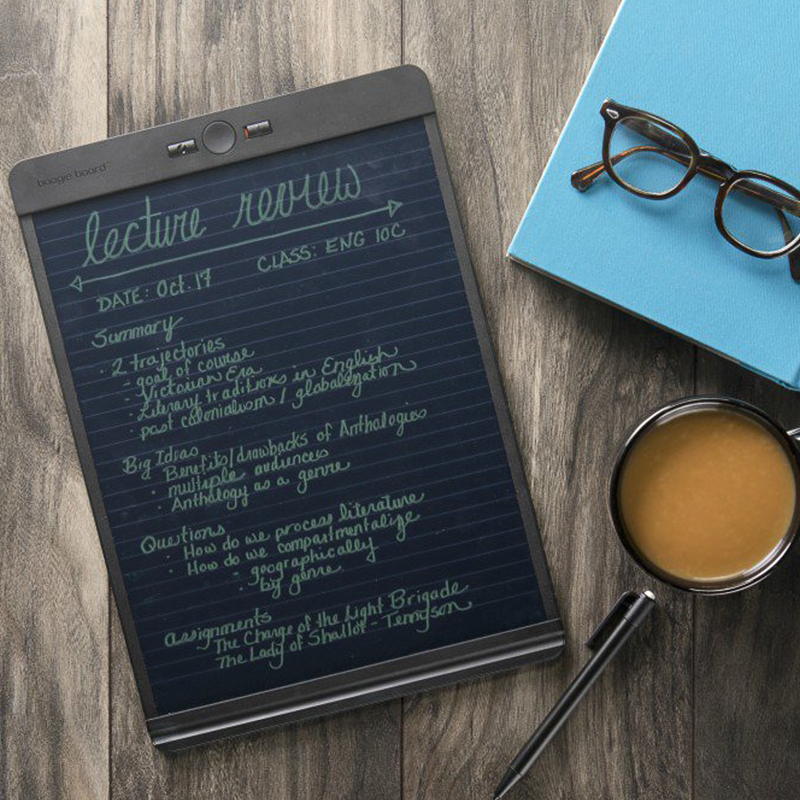 boogie board
lecture review
DATE: Oct. 17 CLASS: ENG 10C
Summary
· 2 trajectories
- goal of course
· Victorian Era
· Literary traditions in English
· past colonialism / globalization
Big Ideas
· Benefits/drawbacks of Anthologies
· multiple audiences
· Anthology as a genre
Questions
· How do we process literature
· How do we compartmentalize
- geographically
· by genre
assignments
The Charge of the Light Brigade
The Lady of Shallot - Tennyson